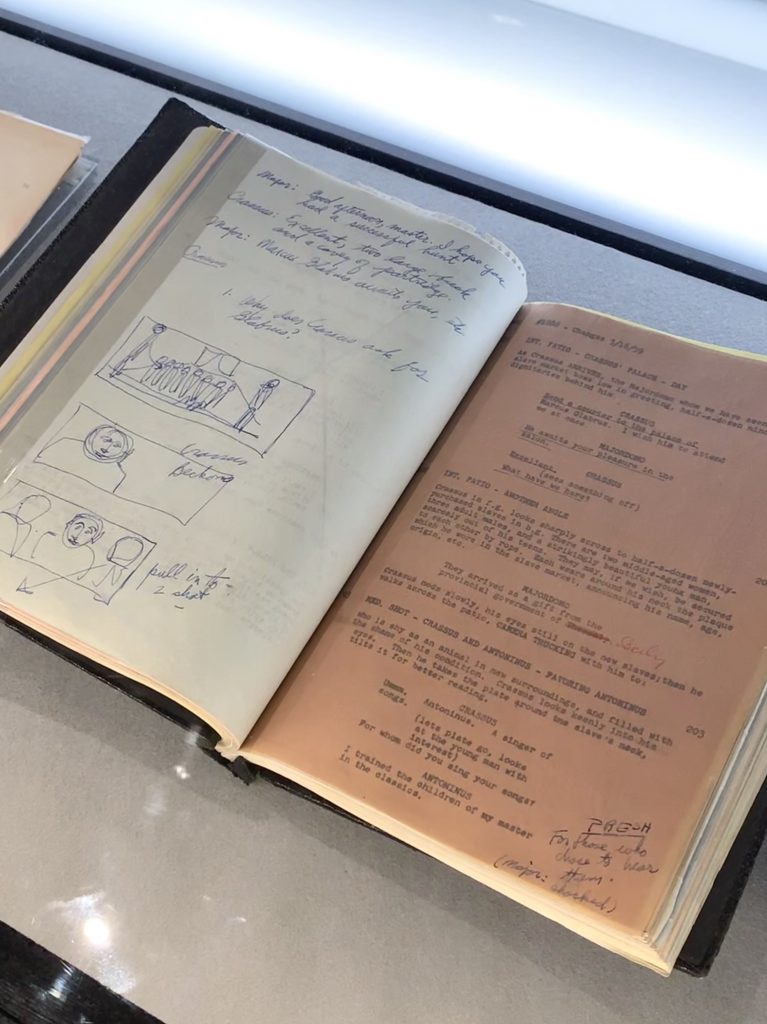 Major: Good afternoon, master. I hope you
had a successful hunt
Crassus: Excellent, two large buck
and a covey of partridge.
Major: Marcus Glabrus awaits you, in
1. Why does Crassus ask for
Glabrus?
Crassus
Beckons
pull in to
2 shot
Changes
INT. PATIO - CRASSUS' PALACE - DAY
As Crassus ARRIVES, the Majordomo whom we have seen
slave market bows low in greeting, half-a-dozen
dignitaries behind him.
CRASSUS
Send a courier to the palace of
Marcus Glabrus. I wish him to attend
me at once
MAJORDOMO
He awaits your pleasure in the
salon.
CRASSUS
Excellent.
(sees something off)
What have we here?
INT. PATIO - ANOTHER ANGLE
Crassus in f.g. looks sharply across to half-a-dozen newly-
purchased slaves in b.g. There are two middle-aged women,
three adult males, and a strikingly beautiful young man,
scarcely out of his teens. They may, if we wish, be secured
to each other by rope. Each wears around his neck the plaque
which he wore in the slave market, announcing his name, age,
origin, etc.
MAJORDOMO
They arrived as a gift from the
provincial government of Sicily
Crassus nods slowly, his eyes still on the new slaves; then he
walks across the patio, CAMERA TRUCKING with him to:
MED. SHOT - CRASSUS AND ANTONINUS - FAVORING ANTONINUS
203
who is shy as an animal in new surroundings, and filled with
the shame of his condition. Crassus looks keenly into his
eyes. Then he takes the plate around the slave's neck,
tilts it for better reading.
CRASSUS
Ummm. Antoninus. A singer of
songs.
(lets plate go, looks
at the young man with
interest)
For whom did you sing your songs?
ANTONINUS
I trained the children of my master
in the classics.
For those who
chose to hear
them.
(major: shocked)